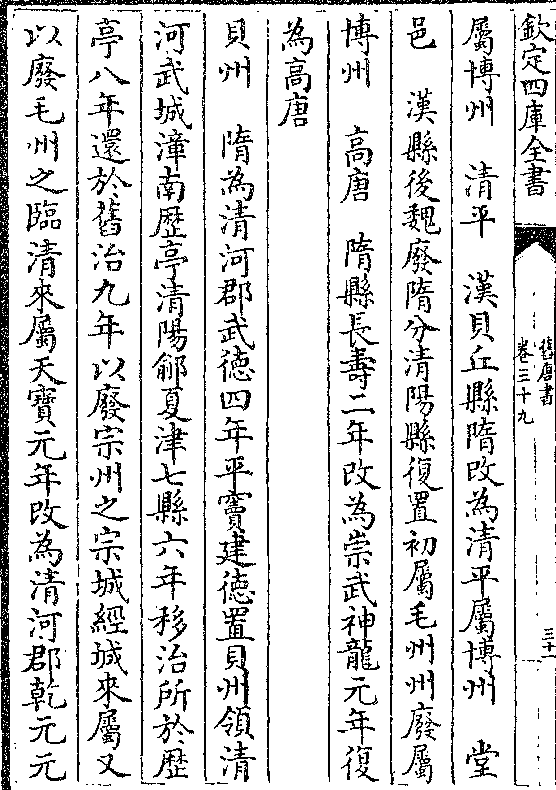 欽定四庫全書
舊唐書
卷三十九
三十一
屬博州　清平　漢貝丘縣隋改為清平屬博州　堂
邑　漢縣後魏廢隋分清陽縣復置初屬毛州州廢屬
博州　高唐　隋縣長壽二年改為崇武神龍元年復
為高唐
貝州　隋為清河郡武德四年平竇建德置貝州領清
河武城漳南歷亭清陽鄃夏津七縣六年移治所於歷
亭八年還於舊治九年以廢宗州之宗城經城來屬又
以廢毛州之臨清來屬天寶元年改為清河郡乾元元